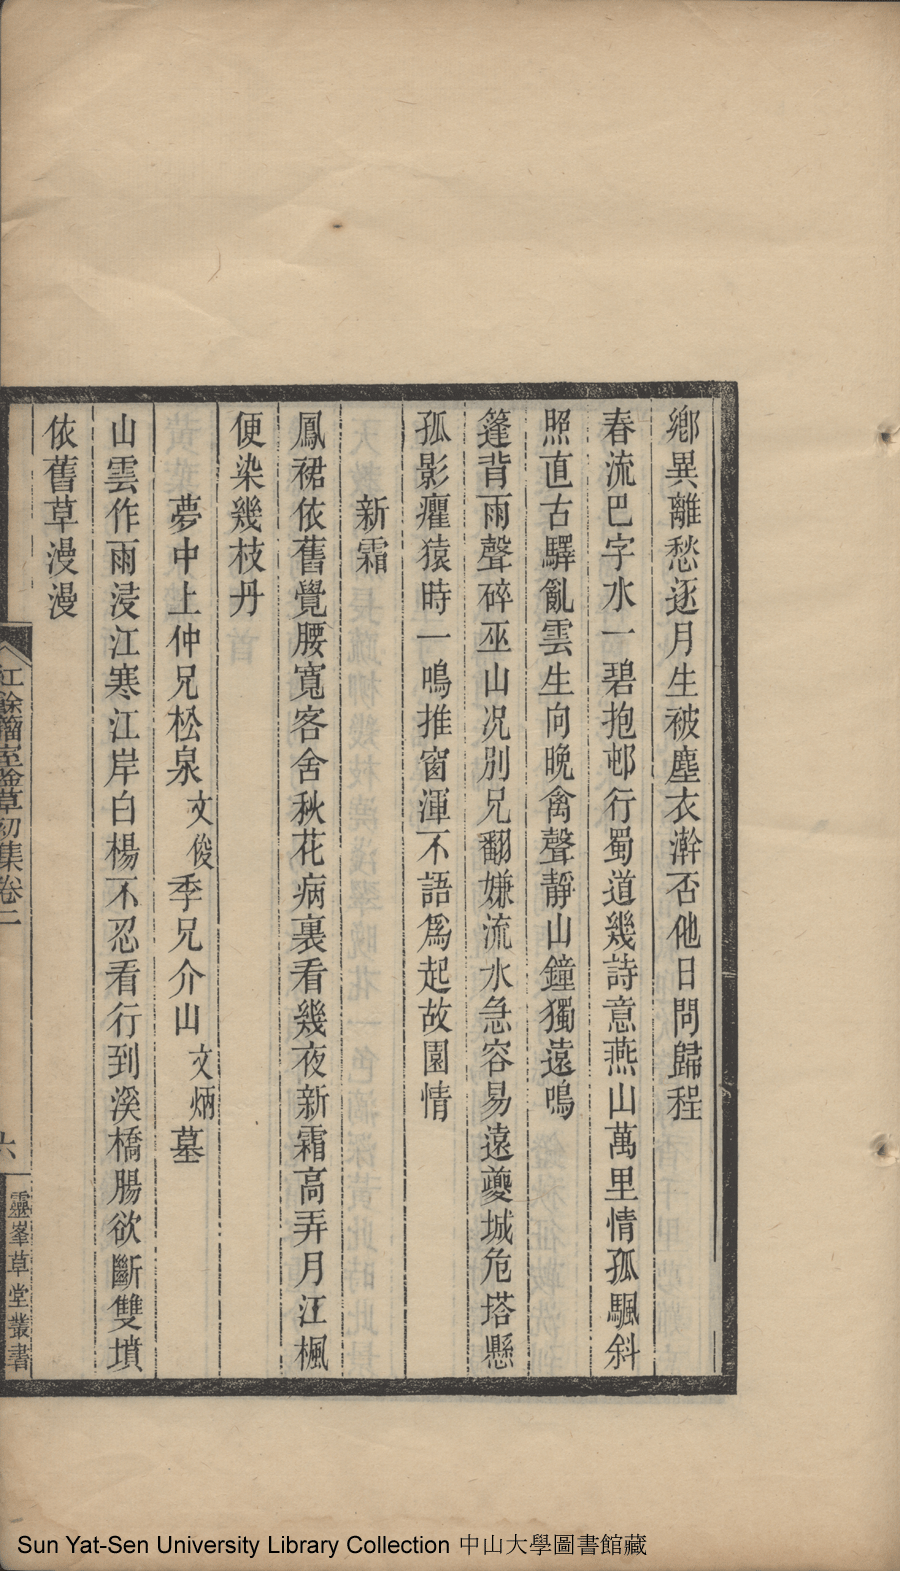 鄉異離愁逐月生被塵衣澣否他日問歸程
春流巴字水一碧抱邨行蜀道幾詩意燕山萬里情孤颿斜
照直古驛亂雲生向晚禽聲靜山鐘獨遠鳴
篷背雨聲碎巫山况別兄翻嫌流水急容易遠夔城危塔懸
孤影癯猿時一鳴推窗渾不語為起故園情
新霜
鳳裙依舊覺腰寬客舍秋花病裏看幾夜新霜高弄月江楓
便染幾枝丹
夢中上仲兄松泉文俊季兄介山文炳墓
山雲作雨浸江寒江岸白楊不忍看行到溪橋腸欲斷雙墳
依舊草漫漫
餘 室 草初集卷二
六
靈峯草堂叢書
Sun Yat-Sen University Library Collection 中山大學圖書館藏